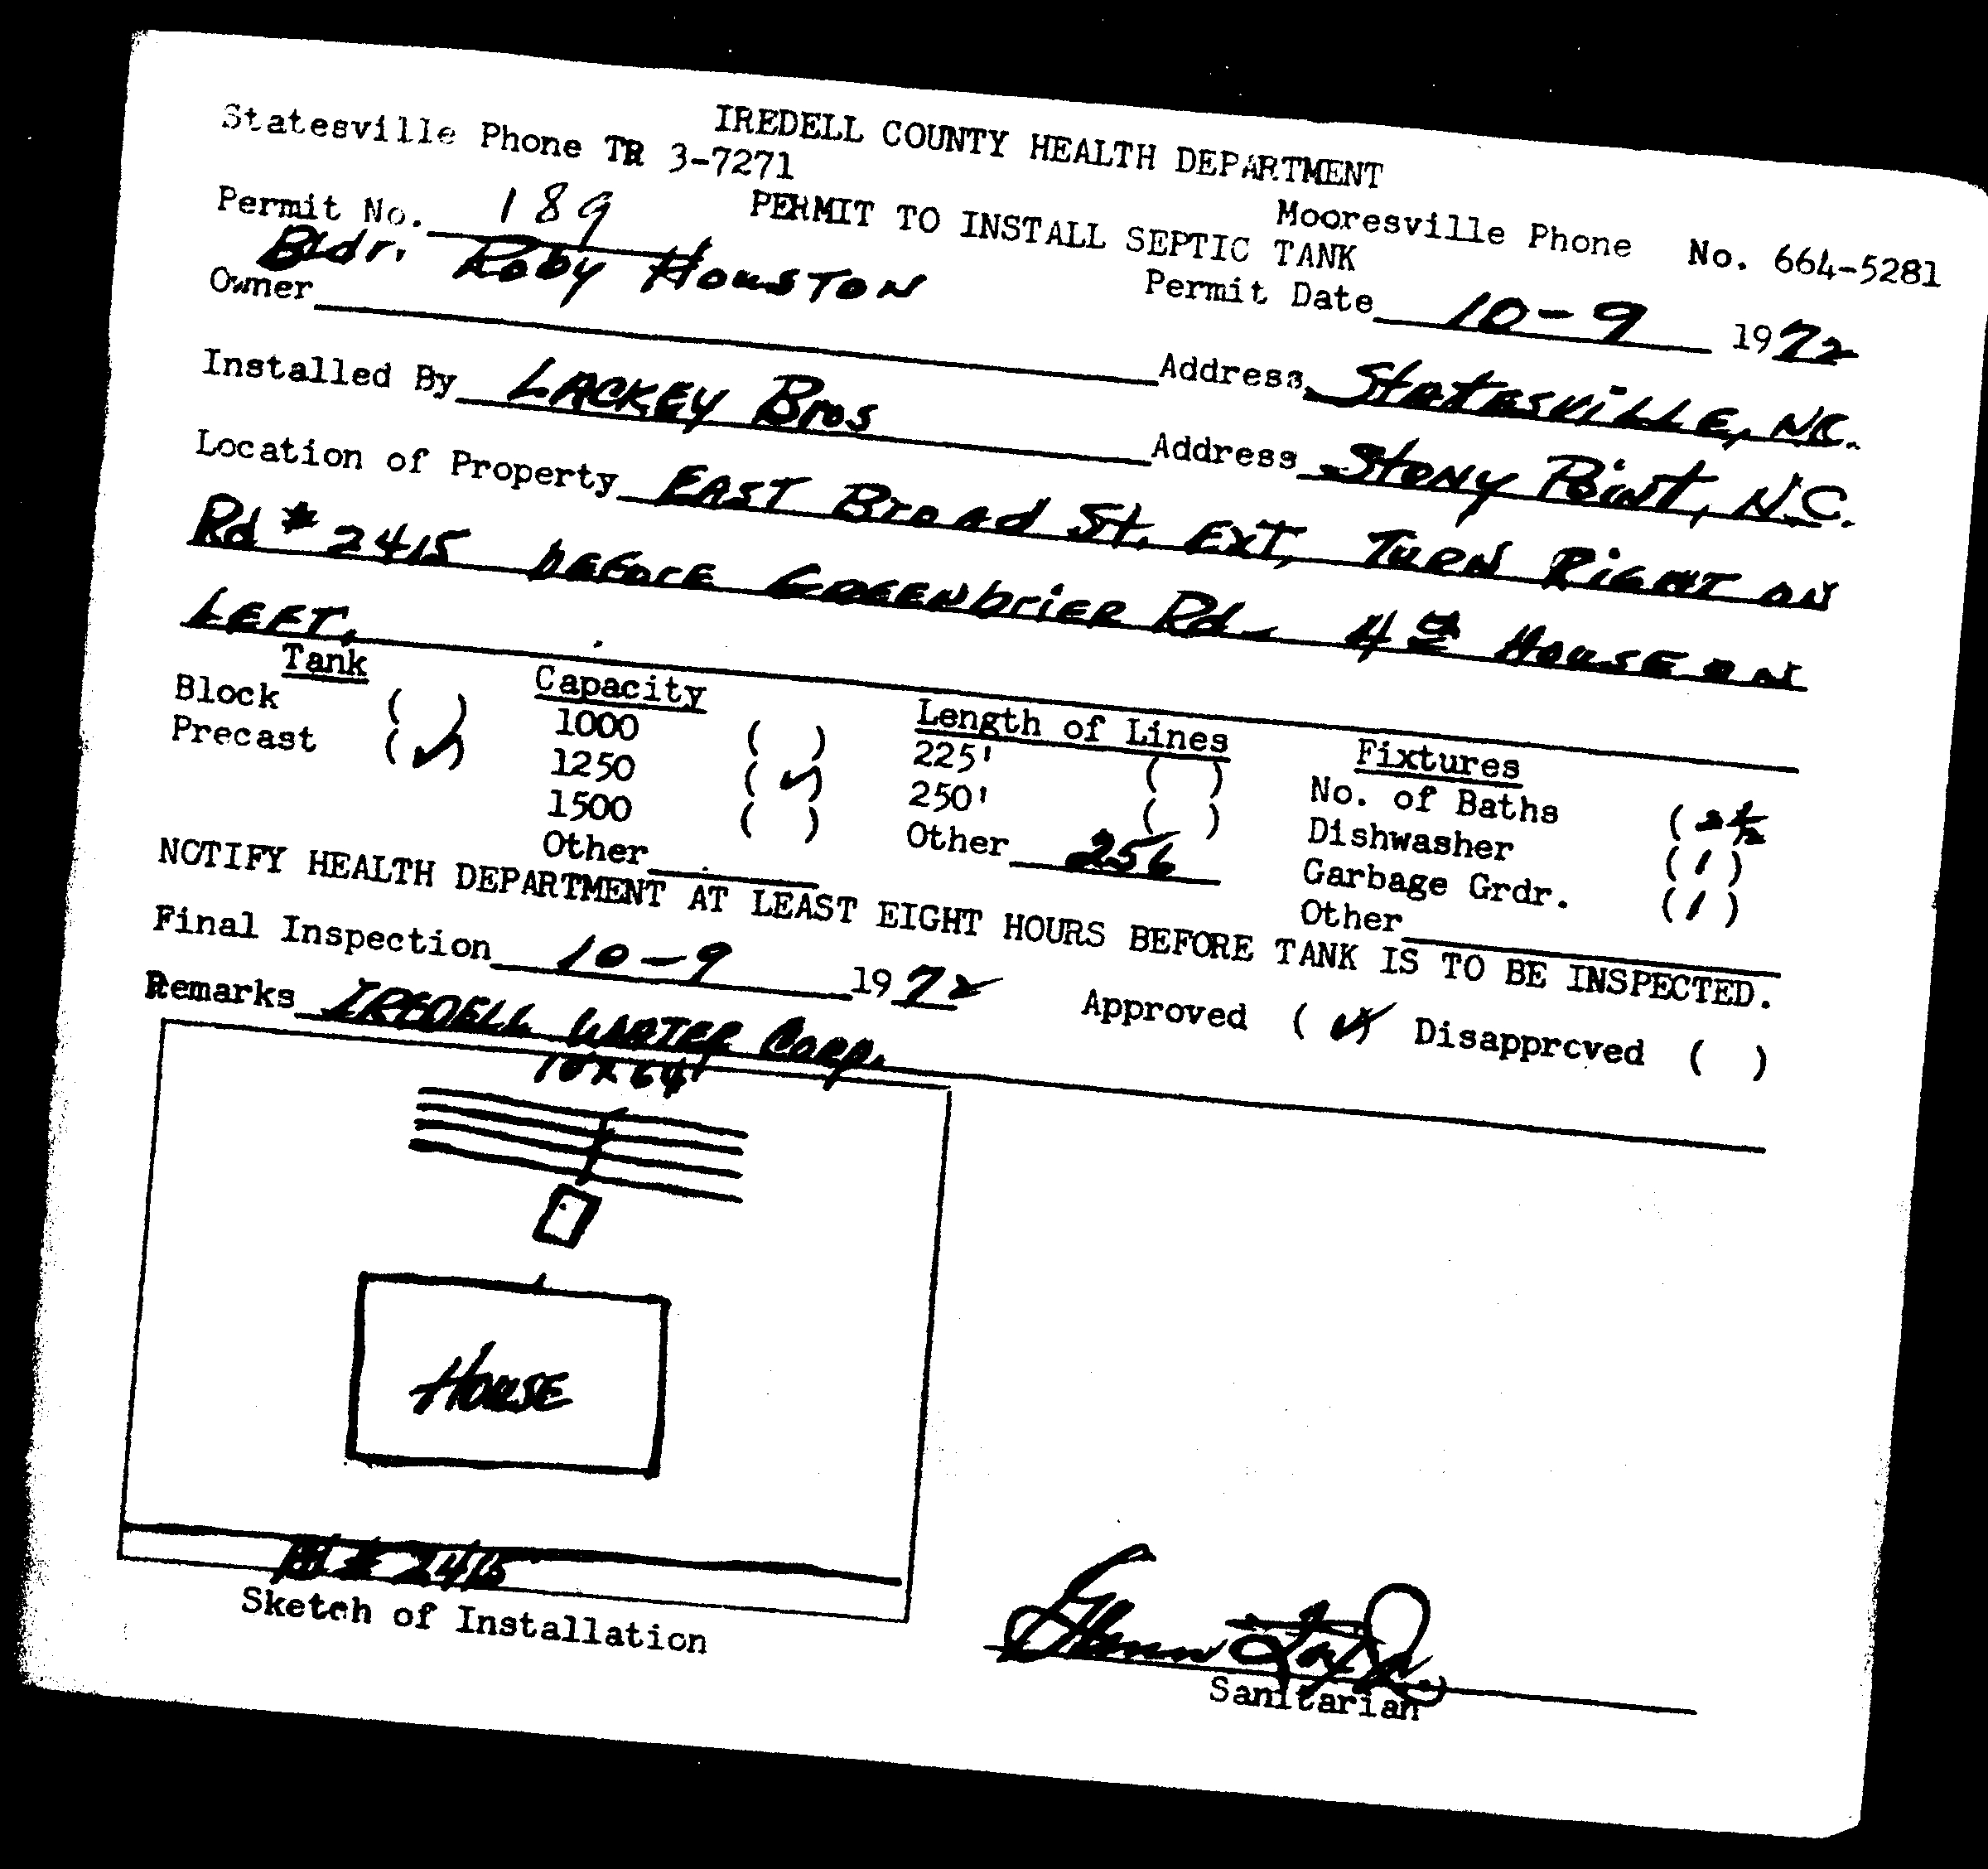 IREDELL COUNTY HEALTH DEPARTMENT
Statesville Phone TR 3-7271 Mooresville Phone No. 664-5281
PERMIT TO INSTALL SEPTIC TANK
Permit No. 189 Permit Date 10-9 1972
Owner Bldr. Roby Houston Address Statesville, N.C.
Installed By Lackey Bros Address Stony Point, N.C.
Location of Property East Broad St. Ext, Turn Right on
Rd # 2415 before Greenbrier Rd - 4th House on
Left.
Tank Capacity Length of Lines Fixtures
Block ( ) 1000 ( ) 225' ( ) No. of Baths ( 2 1/2
Precast (✓) 1250 (✓) 250' ( ) Dishwasher (1)
1500 ( ) Other 256 Garbage Grdr. (1)
Other Other
NOTIFY HEALTH DEPARTMENT AT LEAST EIGHT HOURS BEFORE TANK IS TO BE INSPECTED.
Final Inspection 10-9 1972 Approved (✓) Disapproved ( )
Remarks Iredell Water Corp.
House
Rd # 2415
Sketch of Installation
Sanitarian